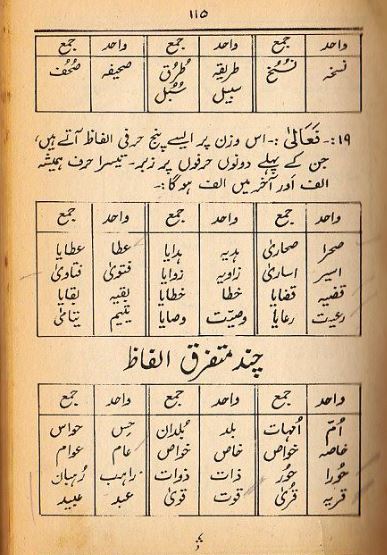 ۱۱۵
واحد جمع واحد جمع واحد جمع
نسخہ نُسُخ طریقہ طُرُق صحیفہ صُحُف
سبیل سُبُل
۱۹:- فَعَالیٰ :- اس وزن پر ایسے پنج حرفی الفاظ آتے ہیں،
جن کے پہلے دونوں حرفوں پر زبر۔ تیسرا حرف ہمیشہ
الف اور آخر میں الف ہوگا :-
واحد جمع واحد جمع واحد جمع
صحرا صحاریٰ ہدیہ ہدایا عطا عطایا
اسیر اساریٰ زاویہ زوایا فتویٰ فتاویٰ
قضیہ قضایا خطا خطایا بقیہ بقایا
رعیت رعایا وصیّت وصایا یتیم یتامیٰ
چند متفرق الفاظ
واحد جمع واحد جمع واحد جمع
اُمّ اُمہات بلد بُلدان حِس حواس
خاصہ خواص خاص خواص عام عوام
حورا حُور ذات ذوات راہب رُہبان
قریہ قُریٰ قوت قویٰ عبد عبید